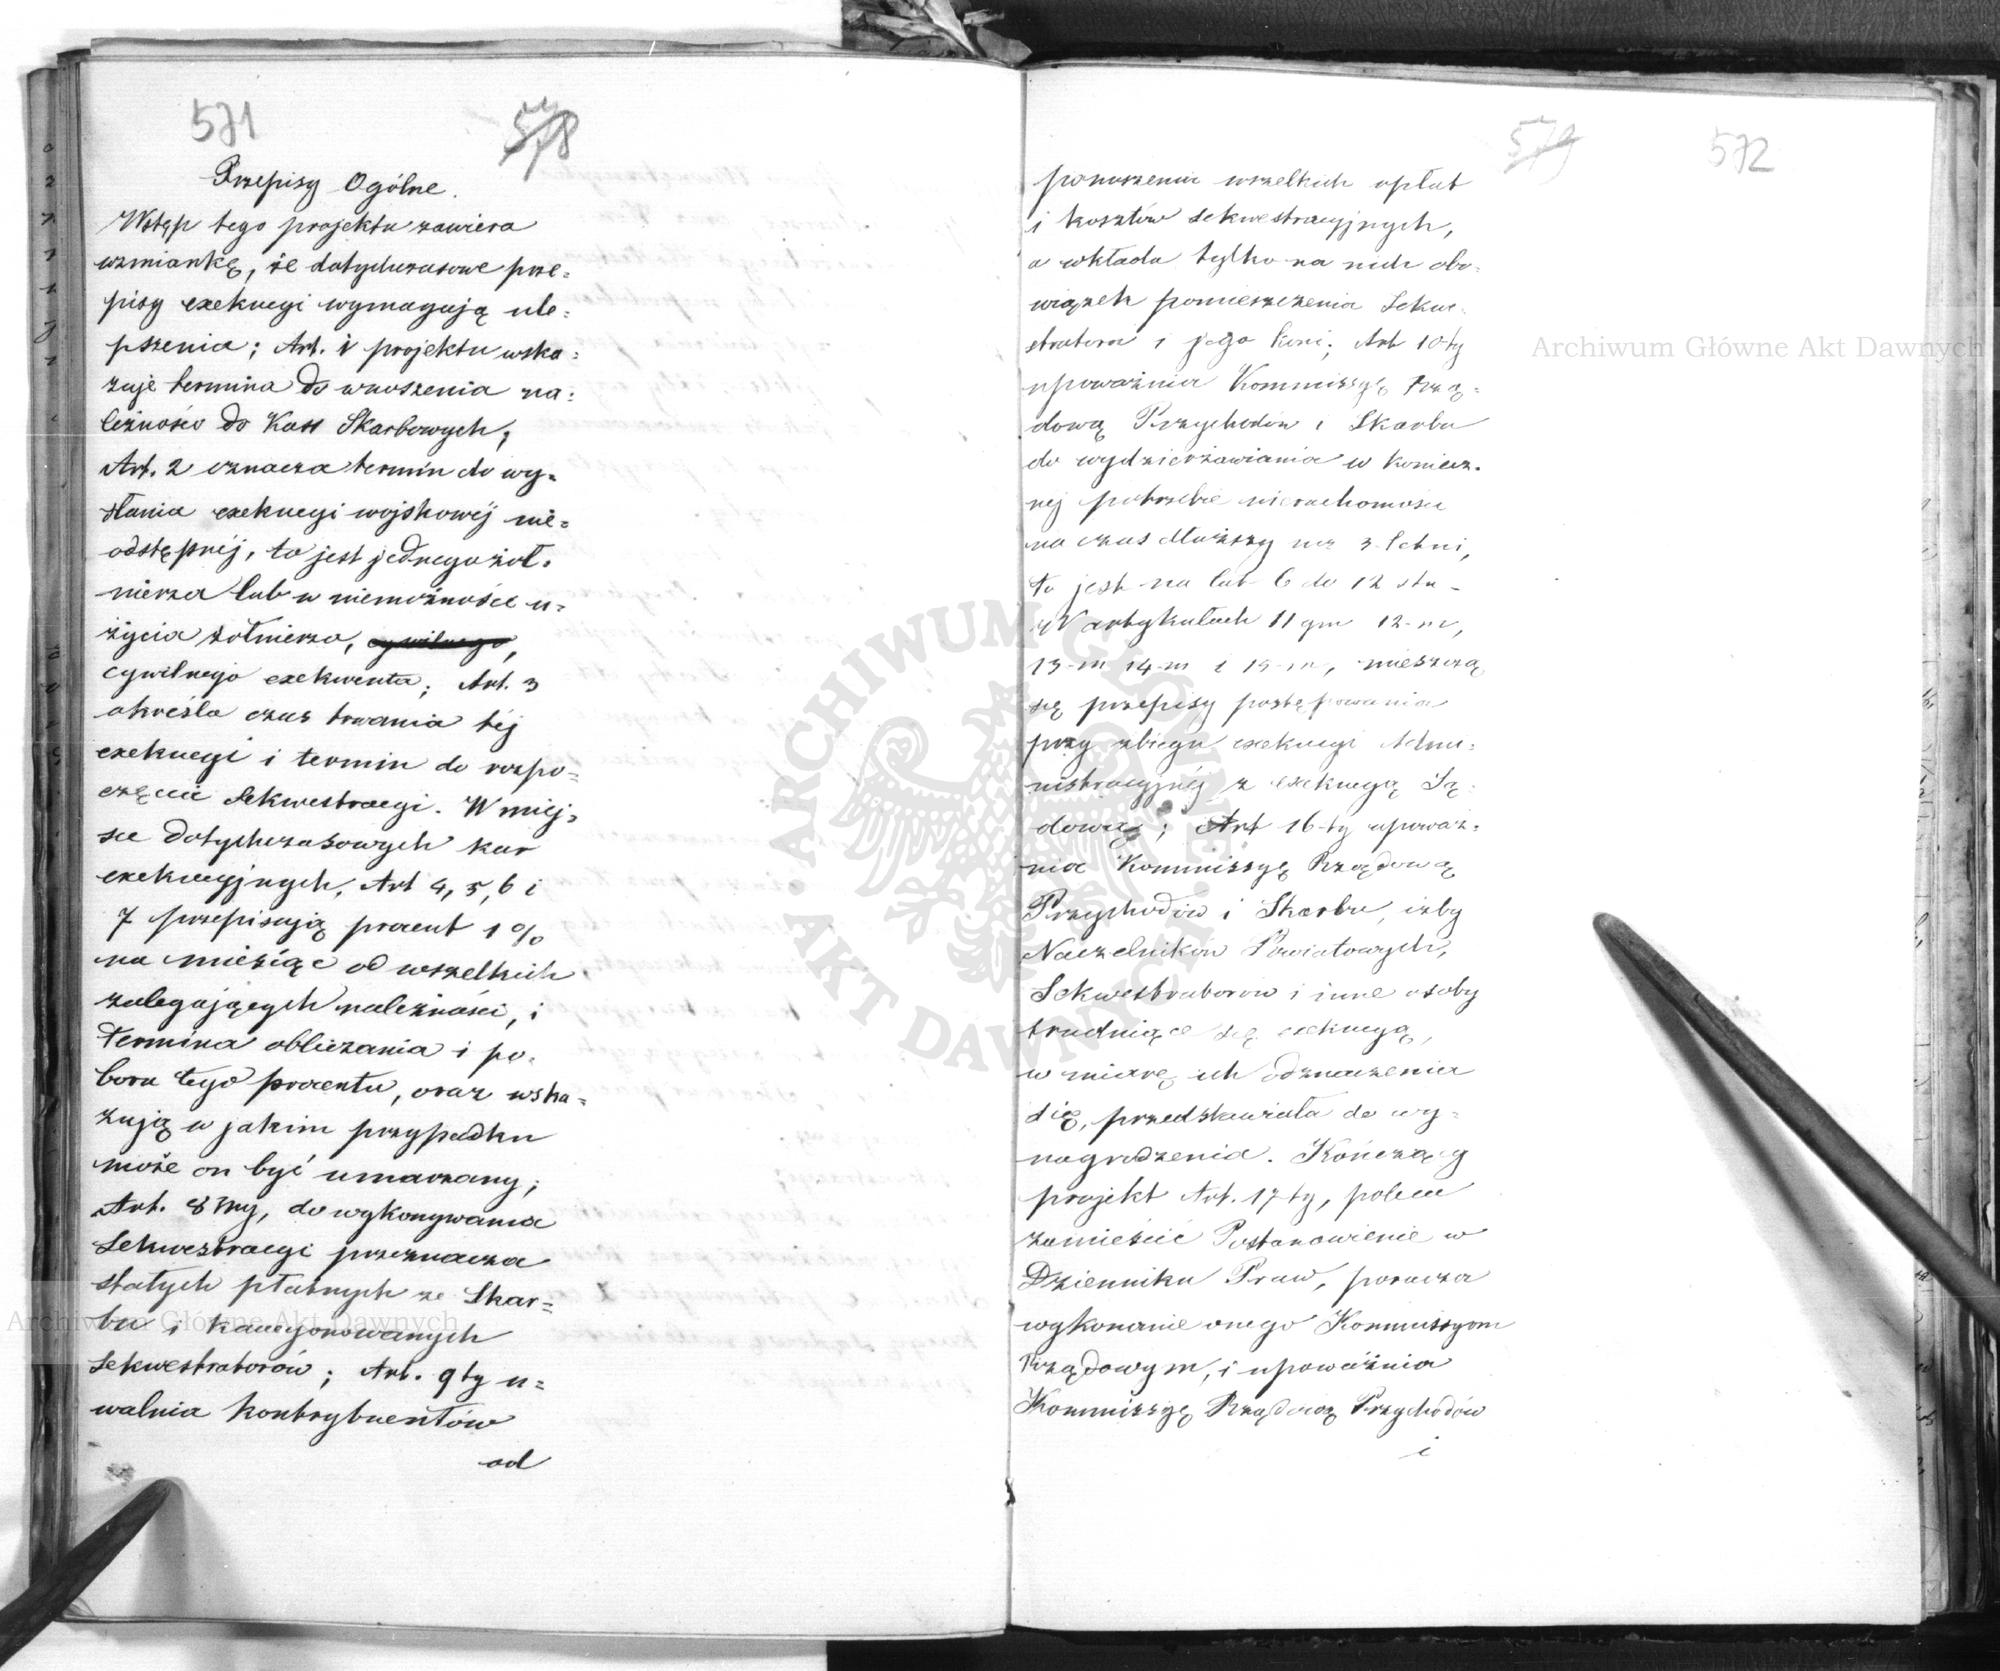 571
578
Przepisy Ogólne.
Wstęp tego projektu zawiera
wzmiankę, że dotychczasowe prze=
pisy exekucyi wymagają ule=
pszenia; Art. 1 projektu wska=
zuje termina do wnoszenia na=
leżności do Kass Skarbowych;
Art. 2 oznacza termin do wy=
słania exekucyi wojskowéj nie=
odstępnéj, to jest jednego żoł=
nierza lub w niemożności u=
życia żołnierza, cywilnego,
cywilnego exekwenta; Art. 3
określa czas trwania téj
exekucyi i termin do rozpo=
częcia Sekwestracyi. W miej=
sce dotychczasowych kar
exekucyjnych, Art 4, 5, 6 i
7 przepisują procent 1 %
na miesiąc od wszelkich
zalegających należności, i
termina obliczania i po=
boru tego procentu, oraz wska=
zują w jakim przypadku
może on być umarzany;
Art. 8my, do wykonywania
Sekwestracyi przeznacza
stałych płatnych ze Skar=
bu i kaucyonowanych
Sekwestratorów; Art. 9ty u=
walnia kontrybuentów
od
579
572
ponoszenia wszelkich opłat
i kosztów sekwestracyjnych,
a wkłada tylko na nich obo=
wiązek pomieszczenia Sekwe=
stratora i jego koni; Art 10ty
upoważnia Kommissyę Rzą=
dową Przychodów i Skarbu
do wydzierżawiania w koniecz=
néj potrzebie nieruchomości
na czas dłuższy niż 3-letni,
to jest na lat 6 do 12stu-
W artykułach 11ym 12-m,
13-m 14-m i 15-m, mieszczą
się przepisy postępowania
przy zbiegu exekucyi Admi=
nistracyjnéj z exekucyą Są=
dową; Art 16-ty upoważ=
nia Kommissyę Rządową
Przychodów i Skarbu, iżby
Naczelników Powiatowych,
Sekwestratorów i inne osoby
trudniące się exekucyą,
w miarę ich odznaczenia
się, przedstawiała do wy=
nagrodzenia. Kończący
projekt Art. 17-ty, poleca
zamieścić Postanowienie w
Dzienniku Praw, porucza
wykonanie onego Kommissyom
Rządowym, i upoważnia
Kommissyę Rządową Przychodów
i
Archiwum Główne Akt Dawnych
Archiwum Główne Akt Dawnych
ARCHIWUM GŁÓWNE AKT DAWNYCH